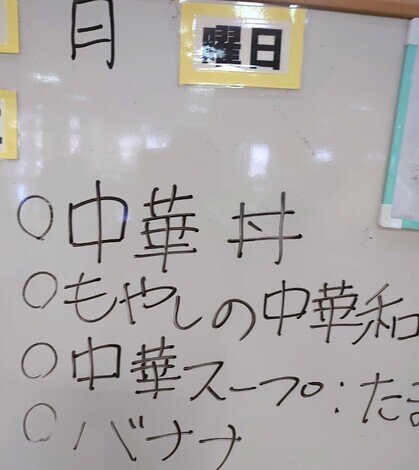 月 曜日
○中華丼
○もやしの中華和
○中華スープ:たま
○バナナ